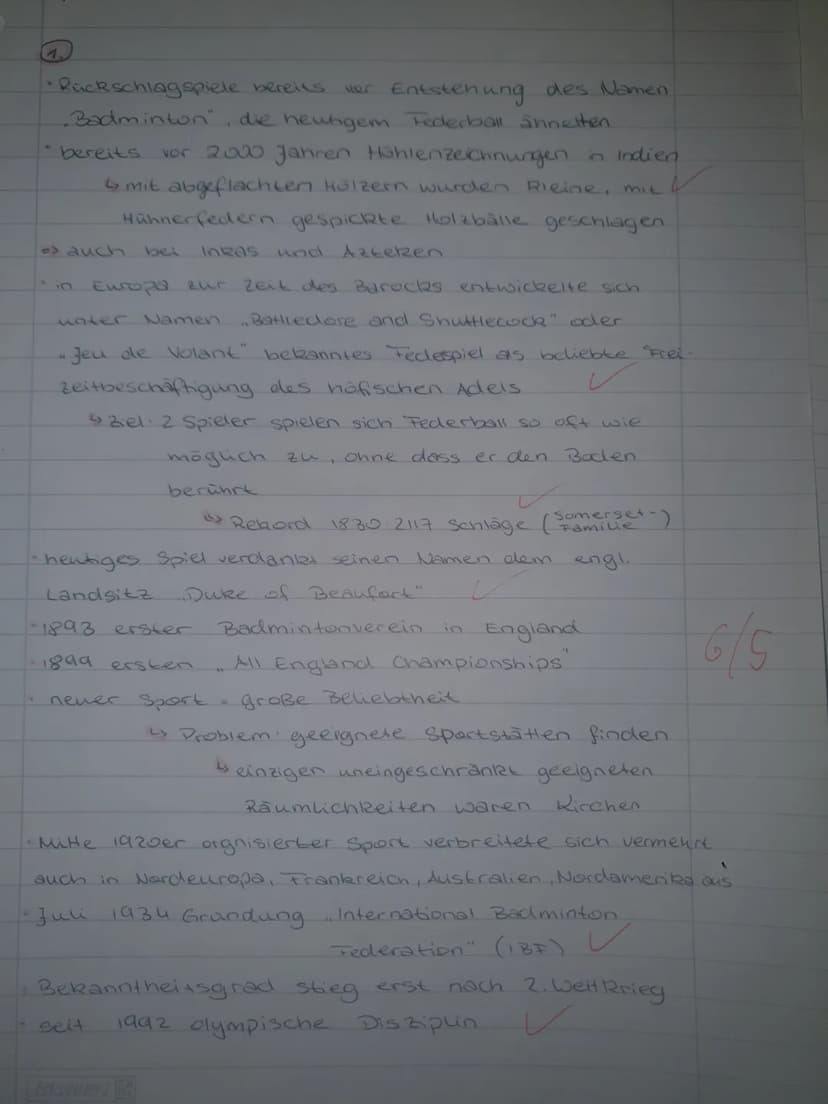 1.
· Rückschlagspiele bereits vor Entstehung des Namen
„Badminton", die heutigem Federball ähnelten
· bereits vor 2000 Jahren Höhlenzeichnungen in Indien
↳ mit abgeflachten Hölzern wurden kleine, mit
Hühnerfedern gespickte Holzbälle geschlagen
=> auch bei Inkas und Azteken
· in Europa zur Zeit des Barocks entwickelte sich
unter Namen „Battledore and Shuttlecock" oder
„Jeu de Volant" bekanntes Fedespiel as beliebte Frei-
zeitbeschäftigung des höfischen Adels
↳ Ziel: 2 Spieler spielen sich Federball so oft wie
möglich zu, ohne dass er den Boden
berührt
↳ Rekord 1830: 2117 Schläge (Somerset-
Familie)
· heutiges Spiel verdankt seinen Namen dem engl.
Landsitz „Duke of Beaufort"
· 1893 erster Badmintonverein in England
· 1899 ersten „All England Championships"
6/5
· neuer Sport = große Beliebtheit
↳ Problem: geeignete Sportstätten finden
↳ einzigen uneingeschränkt geeigneten
Räumlichkeiten waren Kirchen
· Mitte 1920er orgnisierter Sport verbreitete sich vermehrt
auch in Nordeuropa, Frankreich, Australien, Nordamerika aus
· Juli 1934 Gründung „International Badminton
Federation" (IBF)
· Bekanntheitsgrad stieg erst nach 2. Weltkrieg
· seit 1992 olympische Disziplin